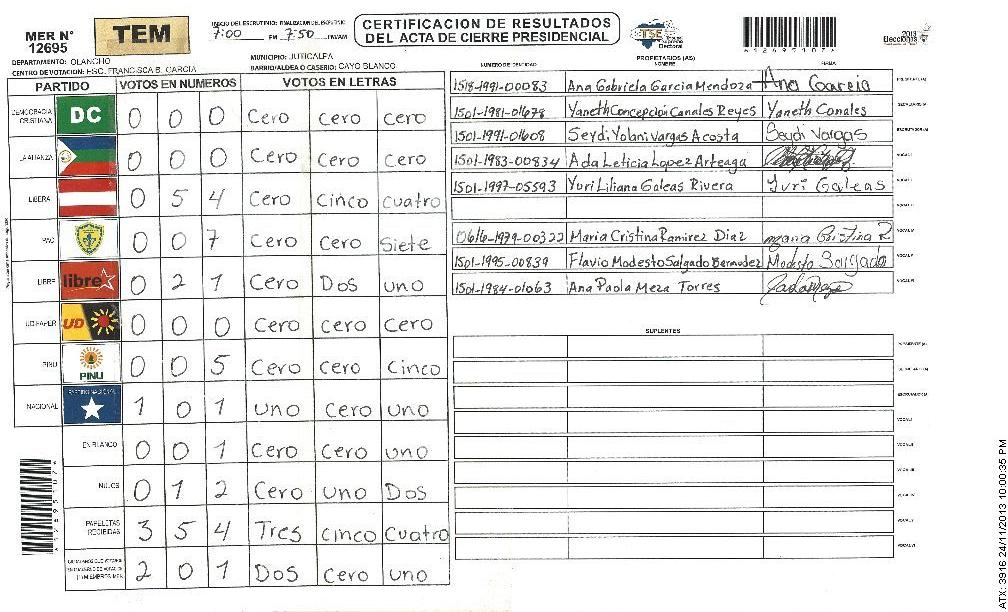 MER Nº 12695
TEM
INICIO DEL ESCRUTINIO: 7:00 PM FINALIZACION DEL ESCRUTINIO 7:50 PM/AM
CERTIFICACION DE RESULTADOS
DEL ACTA DE CIERRE PRESIDENCIAL
TSE
Electoral
2013
Elecciones
DEPARTAMENTO: OLANCHO
MUNICIPIO: JUTICALPA
CENTRO DE VOTACION: ESC. FRANCISCA B. GARCIA
BARRIO/ALDEA O CASERIO: CAYO BLANCO
PROPIETARIOS (AS)
NUMERO DE IDENTIDAD NOMBRE FIRMA
PARTIDO VOTOS EN NUMEROS VOTOS EN LETRAS
DEMOCRACIA CRISTIANA DC 0 0 0 Cero Cero Cero
LA ALIANZA 0 0 0 Cero Cero Cero
LIBERA 0 5 4 Cero Cinco Cuatro
PAC 0 0 7 Cero Cero Siete
LIBRE libre 0 2 1 Cero Dos uno
UD-FAPER UD 0 0 0 Cero Cero Cero
PINU PINU 0 0 5 Cero Cero Cinco
NACIONAL PARTIDO NACIONAL 1 0 1 uno Cero uno
EN BLANCO 0 0 1 Cero Cero uno
NULOS 0 1 2 Cero uno Dos
PAPELETAS RECIBIDAS 3 5 4 Tres cinco Cuatro
2 0 1 Dos Cero uno
1518-1991-00083 Ana Gabriela Garcia Mendoza Ana Garcia
1501-1981-01678 Yaneth Concepción Canales Reyes Yaneth Canales
1501-1991-01608 Seydi Yolani Vargas Acosta Seydi Vargas
1501-1983-00834 Ada Leticia Lopez Arteaga
1501-1997-05593 Yuri Liliana Galeas Rivera Yuri Galeas
0616-1979-00322 Maria Cristina Ramirez Diaz maria Cristina R
1501-1995-00839 Flavio Modesto Salgado Bermudez Modesto Salgado
1501-1984-01063 Ana Paola Meza Torres
SUPLENTES
ATX: 3916 24/11/2013 10:00:35 PM